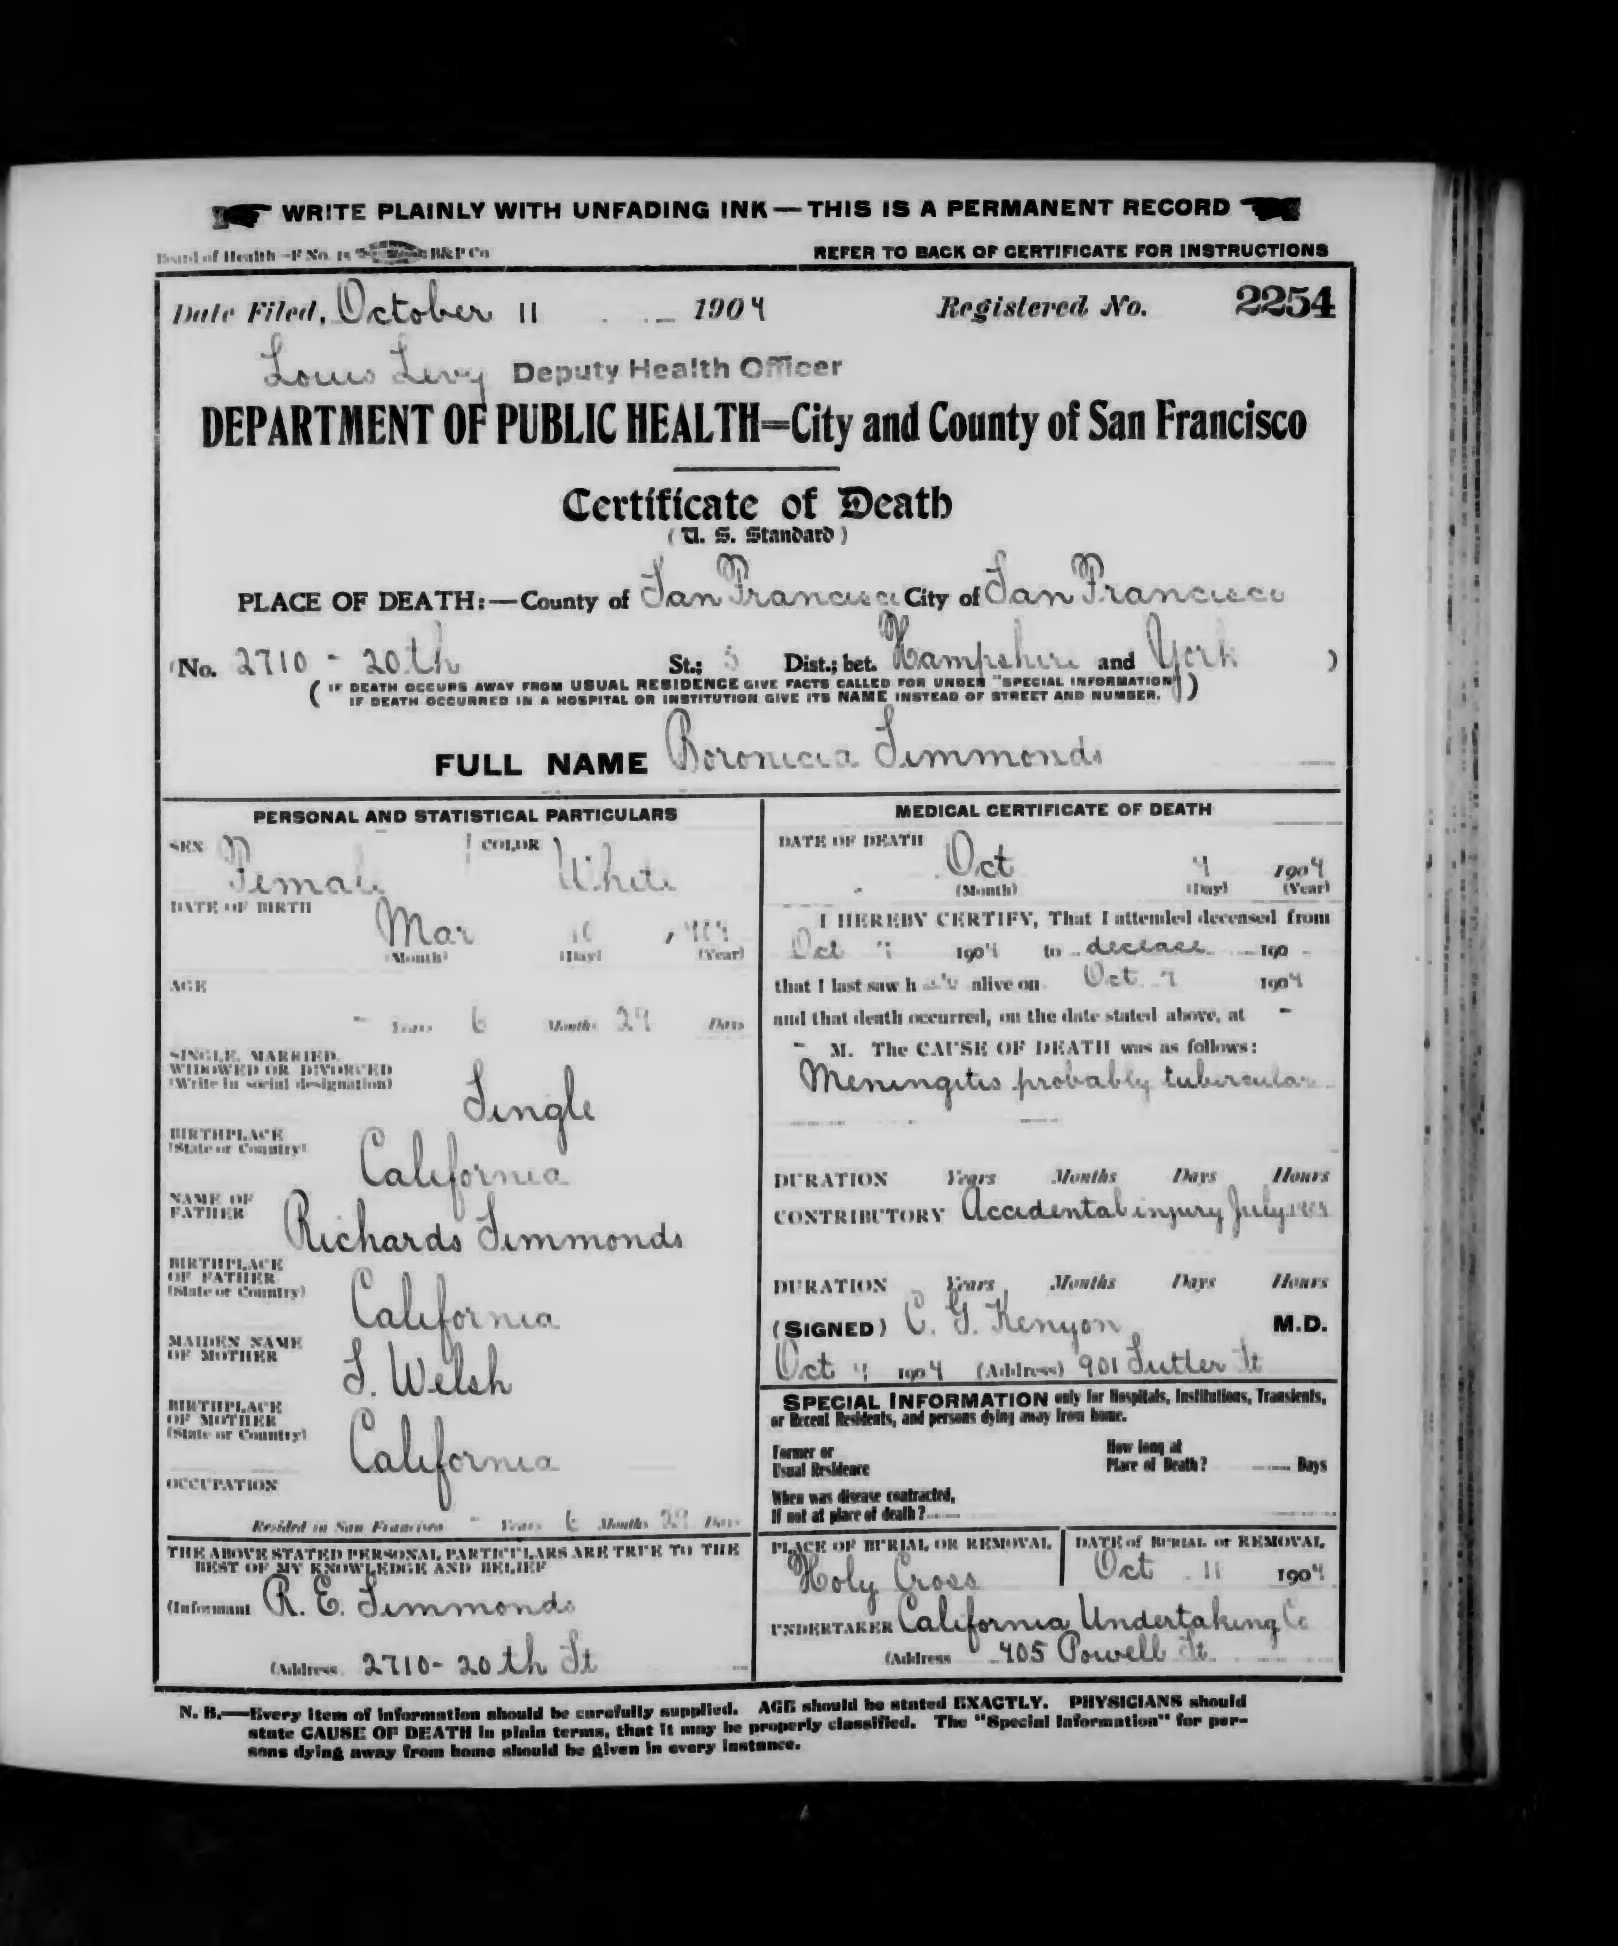 WRITE PLAINLY WITH UNFADING INK — THIS IS A PERMANENT RECORD
Board of Health—F No. 15 B&P Co
REFER TO BACK OF CERTIFICATE FOR INSTRUCTIONS
Date Filed, October 11 1904 Registered No. 2254
Louis Levy Deputy Health Officer
DEPARTMENT OF PUBLIC HEALTH=City and County of San Francisco
Certificate of Death
(U. S. Standard)
PLACE OF DEATH:—County of San Francisco City of San Francisco
(No. 2710 - 20th St.; Dist.; bet. Hampshire and York )
( IF DEATH OCCURS AWAY FROM USUAL RESIDENCE GIVE FACTS CALLED FOR UNDER "SPECIAL INFORMATION" )
IF DEATH OCCURRED IN A HOSPITAL OR INSTITUTION GIVE ITS NAME INSTEAD OF STREET AND NUMBER.
FULL NAME Boronicia Simmonds
PERSONAL AND STATISTICAL PARTICULARS
SEX Female COLOR White
DATE OF BIRTH
Mar
(Month) (Day) (Year)
AGE
- Years 6 Months 29 Days
SINGLE, MARRIED,
WIDOWED OR DIVORCED
(Write in social designation)
Single
BIRTHPLACE
(State or Country)
California
NAME OF
FATHER
Richards Simmonds
BIRTHPLACE
OF FATHER
(State or Country)
California
MAIDEN NAME
OF MOTHER
S. Welsh
BIRTHPLACE
OF MOTHER
(State or Country)
California
OCCUPATION
Resided in San Francisco - Years 6 Months 29 Days
THE ABOVE STATED PERSONAL PARTICULARS ARE TRUE TO THE
BEST OF MY KNOWLEDGE AND BELIEF
(Informant R. E. Simmonds
(Address 2710- 20th St
MEDICAL CERTIFICATE OF DEATH
DATE OF DEATH
Oct 1904
(Month) (Day) (Year)
I HEREBY CERTIFY, That I attended deceased from
Oct 1904 to decease 190
that I last saw h alive on Oct. 1904
and that death occurred, on the date stated above, at -
- M. The CAUSE OF DEATH was as follows:
Meningitis probably tubercular
DURATION Years Months Days Hours
CONTRIBUTORY Accidental injury July
DURATION Years Months Days Hours
(SIGNED) C. G. Kenyon M.D.
Oct 1904 (Address) 901 Sutter St
SPECIAL INFORMATION only for Hospitals, Institutions, Transients,
or Recent Residents, and persons dying away from home.
Former or
Usual Residence
How long at
Place of Death? Days
When was disease contracted,
If not at place of death?
PLACE OF BURIAL OR REMOVAL
Holy Cross
DATE of BURIAL or REMOVAL
Oct 11 1904
UNDERTAKER California Undertaking Co
(Address 405 Powell St.
N. B.—Every item of information should be carefully supplied. AGE should be stated EXACTLY. PHYSICIANS should
state CAUSE OF DEATH in plain terms, that it may be properly classified. The "Special Information" for per-
sons dying away from home should be given in every instance.